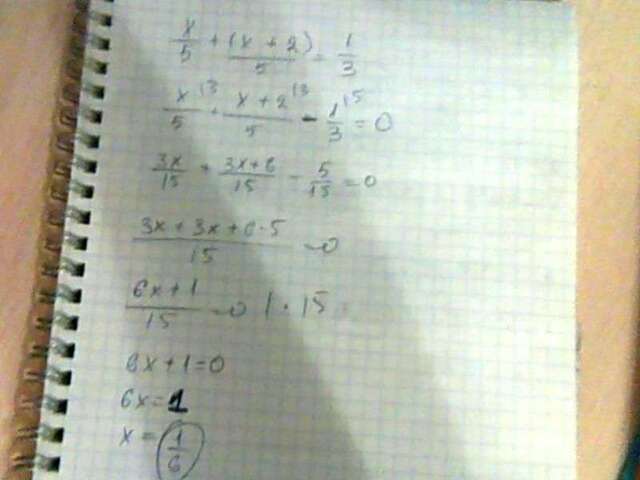 x/5 + (x + 2)/5 = 1/3
x/5 |3 + x + 2/5 |3 - 1/3 |5 = 0
3x/15 + 3x+6/15 - 5/15 = 0
3x + 3x + 6 - 5/15 = 0
6x + 1/15 = 0 | · 15
6x + 1 = 0
6x = 1
x = 1/6